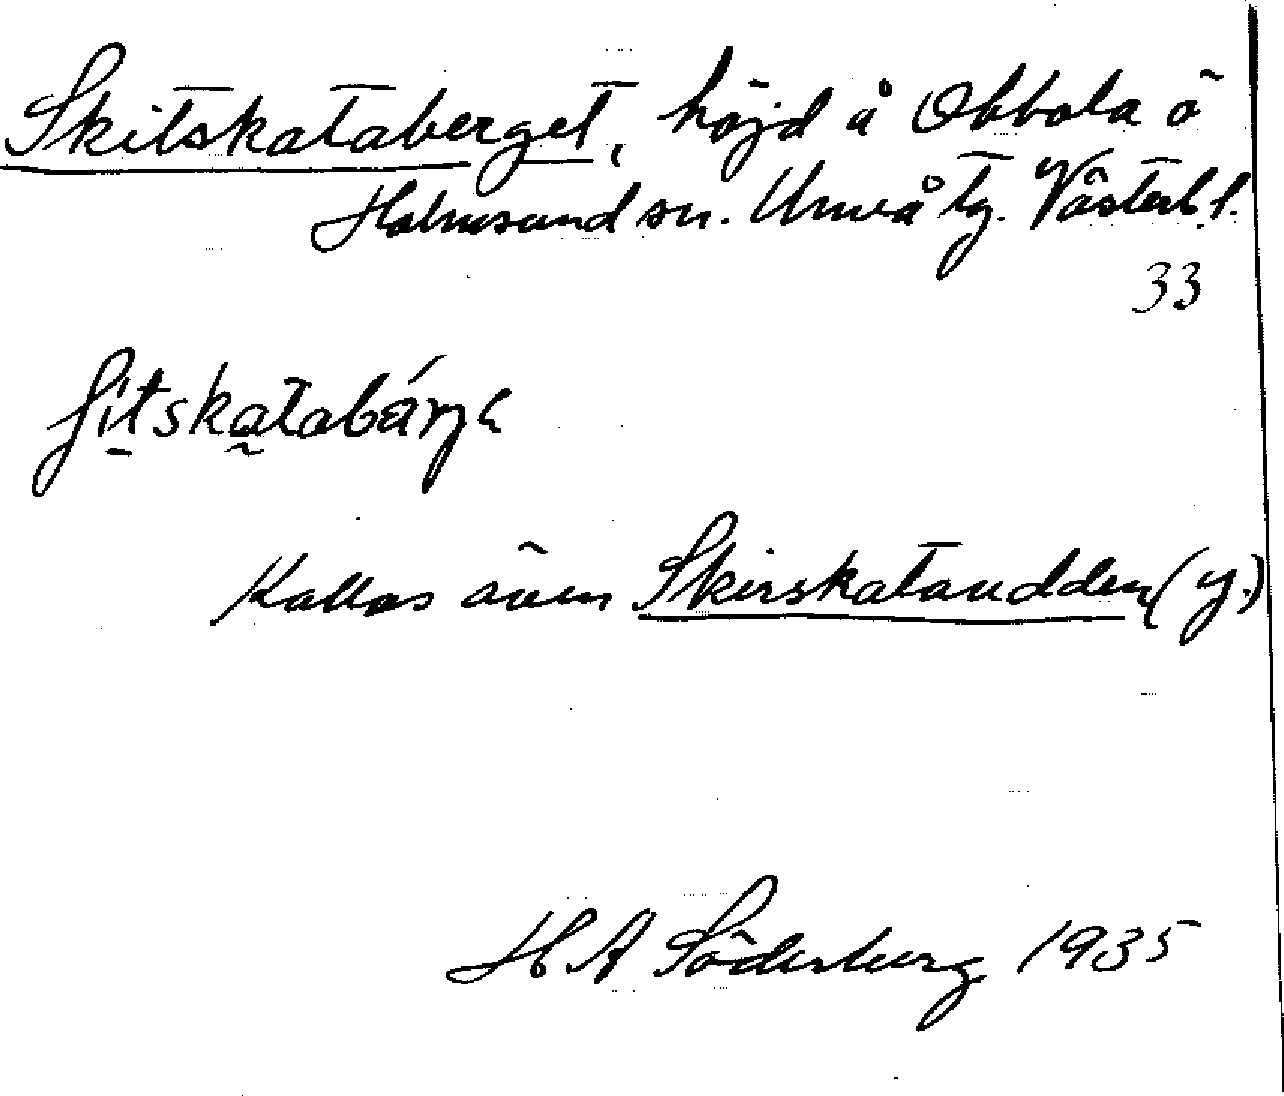 Skitskataberget, höjd å Obbola ö
Holmsund sn. Umeå tg. Västerb. l.
33
ʃi̱tska̰tabárɳɛ
Kallas även Skirskataudden (y.)
H A Söderberg 1935